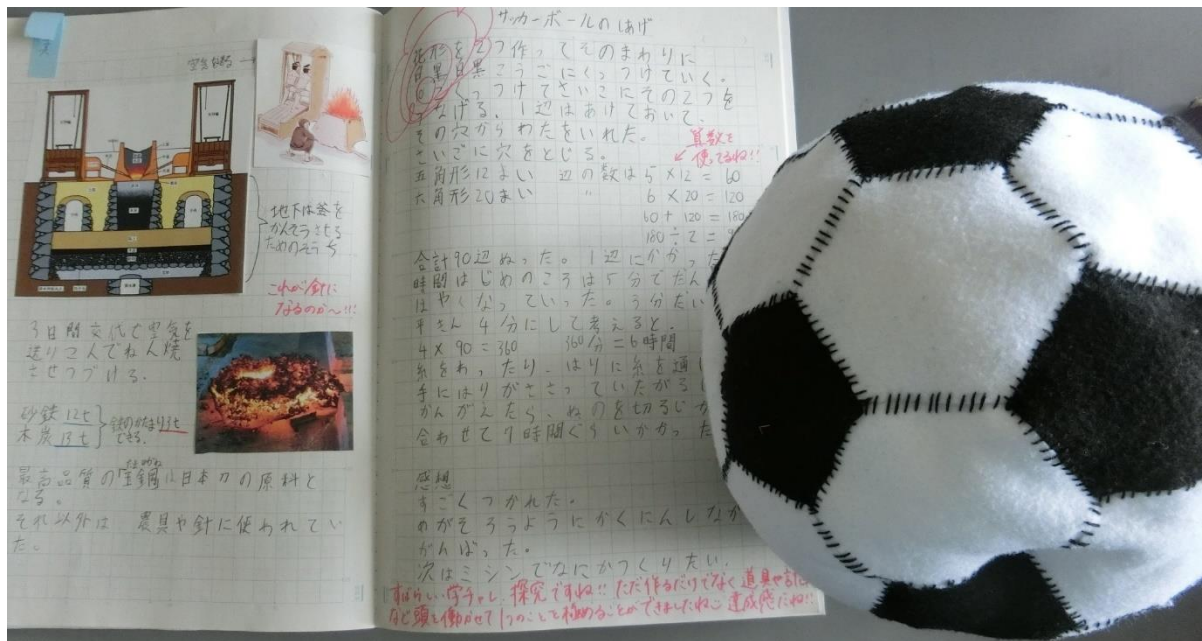 空気を送る→
地下は釜を
かんそうさせる
ためのそうち
これが針に
なるのか〜!!
3日間交代で空気を
送りこんでねん焼
させつづける。
砂鉄 12t
木炭 13t
鉄のかたまり3t
できる。
最高品質の玉鋼は日本刀の原料と
なる。
それ以外は 農具や針に使われてい
た。
サッカーボールの
花形を2つ作ってそのまわりに
白黒白黒こうごにくっつけていく。
くっつけてさいごにその2つを
つなげる。1辺はあけておいて、
その穴からわたをいれた。
さいごに穴をとじる。
算数を
使ってるね!!
五角形12まい 辺の数は 5×12=60
六角形20まい 〃 6×20=120
60+120=180
180÷2=
合計90辺ぬった。1辺にかかった
時間はじめのころは5分でだん
はやくなっていった。3分だい
平きん4分にして考えると、
4×90=360 360分=6時間
糸をわったり、はりに糸を通し
手にはりがささっていたがる
かんがえたら、ぬのを切るじか
合わせて7時間ぐらいかかった
感想
すごくつかれた。
めがそろうようにかくにんしなが
がんばった。
次はミシンでなにかつくりたい。
すばらしい 探究ですね!! ただ作るだけでなく 道具や
など頭を働かせて1つのことを極めることができましたね 達成感だね!!